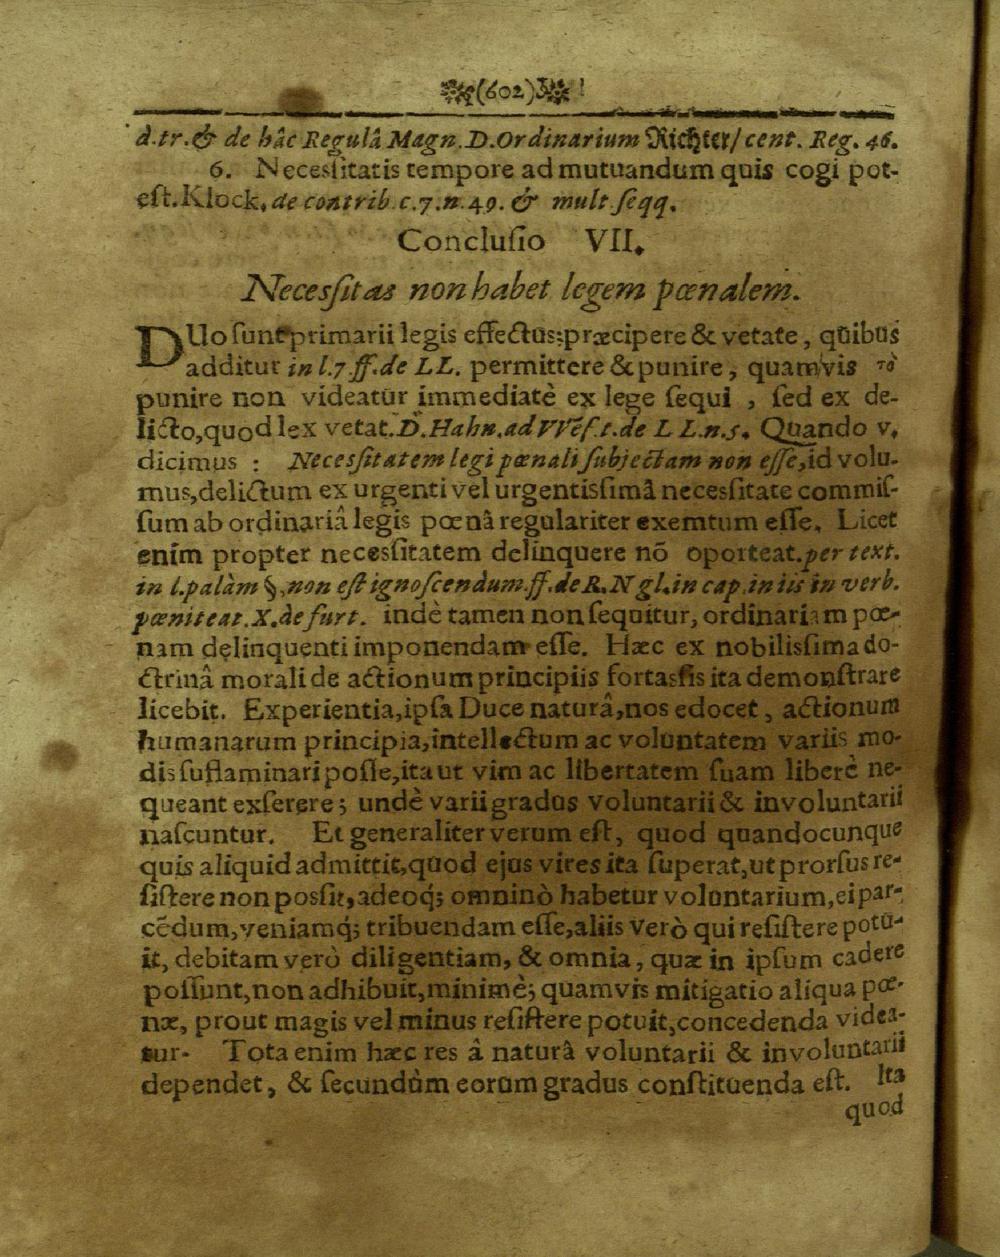 (602)
d.tr.& de hâc Regulâ Magn.D.Ordinarium Richter/cent. Reg. 46.
6. Necesſitatis tempore ad mutuandum quis cogi pot-
eſt. Klock. de contrib. c.7.n.49. & mult ſeqq.
Concluſio VII.
Necesſitas non habet legem pœnalem.
DUo ſunt primarii legis effectus: præcipere & vetate, quibus
additur in l.7.ff.de LL. permittere & punire, quamvis τὸ
punire non videatur immediatè ex lege ſequi, ſed ex de-
licto, quod lex vetat. D. Hahn. ad VVeſ.t.de L L.n.5. Quando v.
dicimus : Necesſitatem legi pœnali ſubjectam non eſſe, id volu-
mus, delictum ex urgenti vel urgentisſimâ necesſitate commiſ-
ſum ab ordinariâ legis pœnâ regulariter exemtum eſſe. Licet
enim propter necesſitatem delinquere nō oporteat. per text.
in l.palàm §. non eſt ignoſcendum.ff.de R.N gl.in cap.in iis in verb.
pœniteat.X.de furt. indè tamen non ſequitur, ordinariam pœ-
nam delinquenti imponendam eſſe. Hæc ex nobilisſima do-
ctrinâ morali de actionum principiis fortasſis ita demonſtrare
licebit. Experientia, ipſa Duce naturâ, nos edocet, actionum
humanarum principia, intellectum ac voluntatem variis mo-
dis ſufflaminari poſſe, ita ut vim ac libertatem ſuam liberè ne-
queant exſerere; undè varii gradus voluntarii & involuntarii
naſcuntur. Et generaliter verum eſt, quod quandocunque
quis aliquid admittit, quod ejus vires ita ſuperat, ut prorſus re-
ſiſtere non posſit, adeoq; omninò habetur voluntarium, ei par-
cēdum, veniamq; tribuendam eſſe, aliis verò qui reſiſtere potu-
it, debitam verò diligentiam, & omnia, quæ in ipſum cadere
poſſunt, non adhibuit, minimè; quamvis mitigatio aliqua pœ-
næ, prout magis vel minus reſiſtere potuit, concedenda videa-
tur. Tota enim hæc res â naturâ voluntarii & involuntarii
dependet, & ſecundùm eorum gradus conſtituenda eſt. Ita
quod